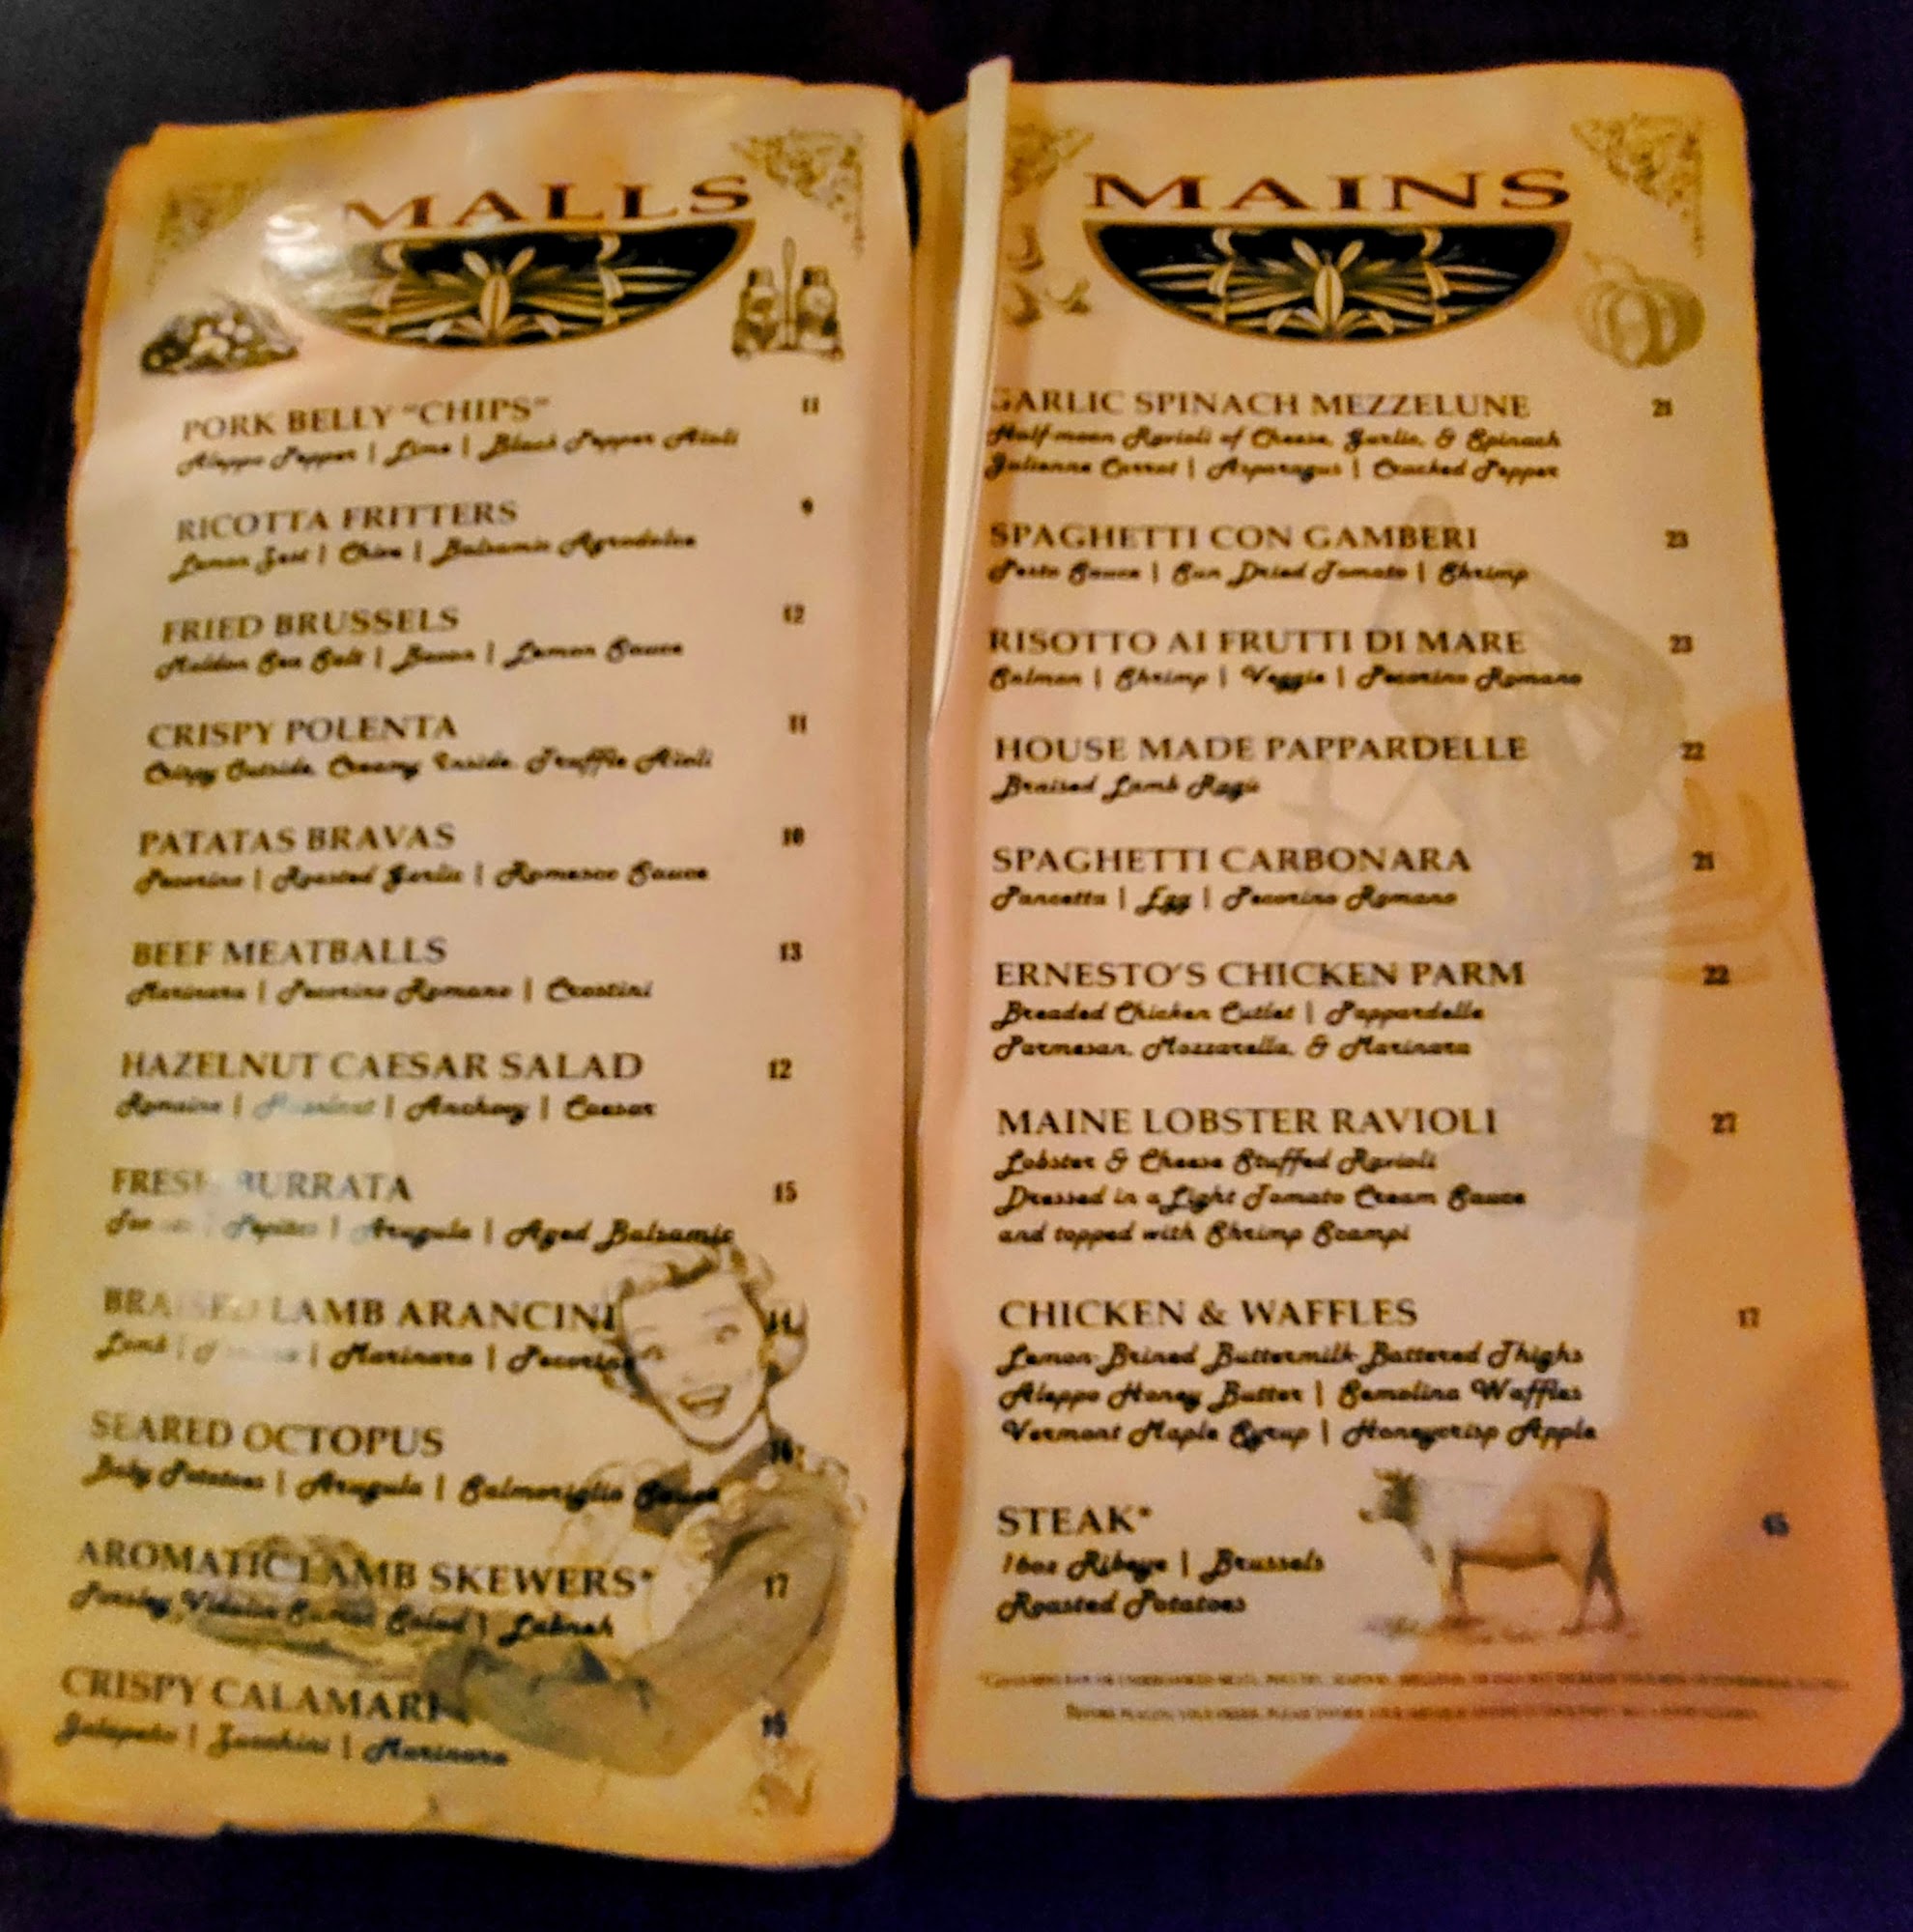 MALLS
PORK BELLY "CHIPS" 11
Aleppo Pepper | Lime | Black Pepper Aioli
RICOTTA FRITTERS 9
Lemon Zest | Chive | Balsamic Agrodolce
FRIED BRUSSELS 12
Maldon Sea Salt | Bacon | Lemon Sauce
CRISPY POLENTA 11
Crispy Outside, Creamy Inside, Truffle Aioli
PATATAS BRAVAS 10
Pecorino | Roasted Garlic | Romesco Sauce
BEEF MEATBALLS 13
Marinara | Pecorino Romano | Crostini
HAZELNUT CAESAR SALAD 12
Romaine | Hazelnut | Anchovy | Caesar
FRESH BURRATA 15
| Pepitas | Arugula | Aged Balsamic
BRAISED LAMB ARANCINI 14
Lamb | | Marinara | Pecorino
SEARED OCTOPUS
Baby Potatoes | Arugula | Salmoriglio Sauce
AROMATIC LAMB SKEWERS* 17
Parsley, Vidalia Sumac Salad | Labneh
CRISPY CALAMARI
Jalapeño | Zucchini | Marinara
MAINS
GARLIC SPINACH MEZZELUNE 21
Half-moon Ravioli of Cheese, Garlic, & Spinach
Julienne Carrot | Asparagus | Cracked Pepper
SPAGHETTI CON GAMBERI 23
Pesto Sauce | Sun Dried Tomato | Shrimp
RISOTTO AI FRUTTI DI MARE 23
Salmon | Shrimp | Veggie | Pecorino Romano
HOUSE MADE PAPPARDELLE 22
Braised Lamb Ragu
SPAGHETTI CARBONARA 21
Pancetta | Egg | Pecorino Romano
ERNESTO'S CHICKEN PARM 22
Breaded Chicken Cutlet | Pappardelle
Parmesan, Mozzarella, & Marinara
MAINE LOBSTER RAVIOLI 27
Lobster & Cheese Stuffed Ravioli
Dressed in a Light Tomato Cream Sauce
and topped with Shrimp Scampi
CHICKEN & WAFFLES 17
Lemon-Brined Buttermilk-Battered Thighs
Aleppo Honey Butter | Semolina Waffles
Vermont Maple Syrup | Honeycrisp Apple
STEAK* 45
16oz Ribeye | Brussels
Roasted Potatoes